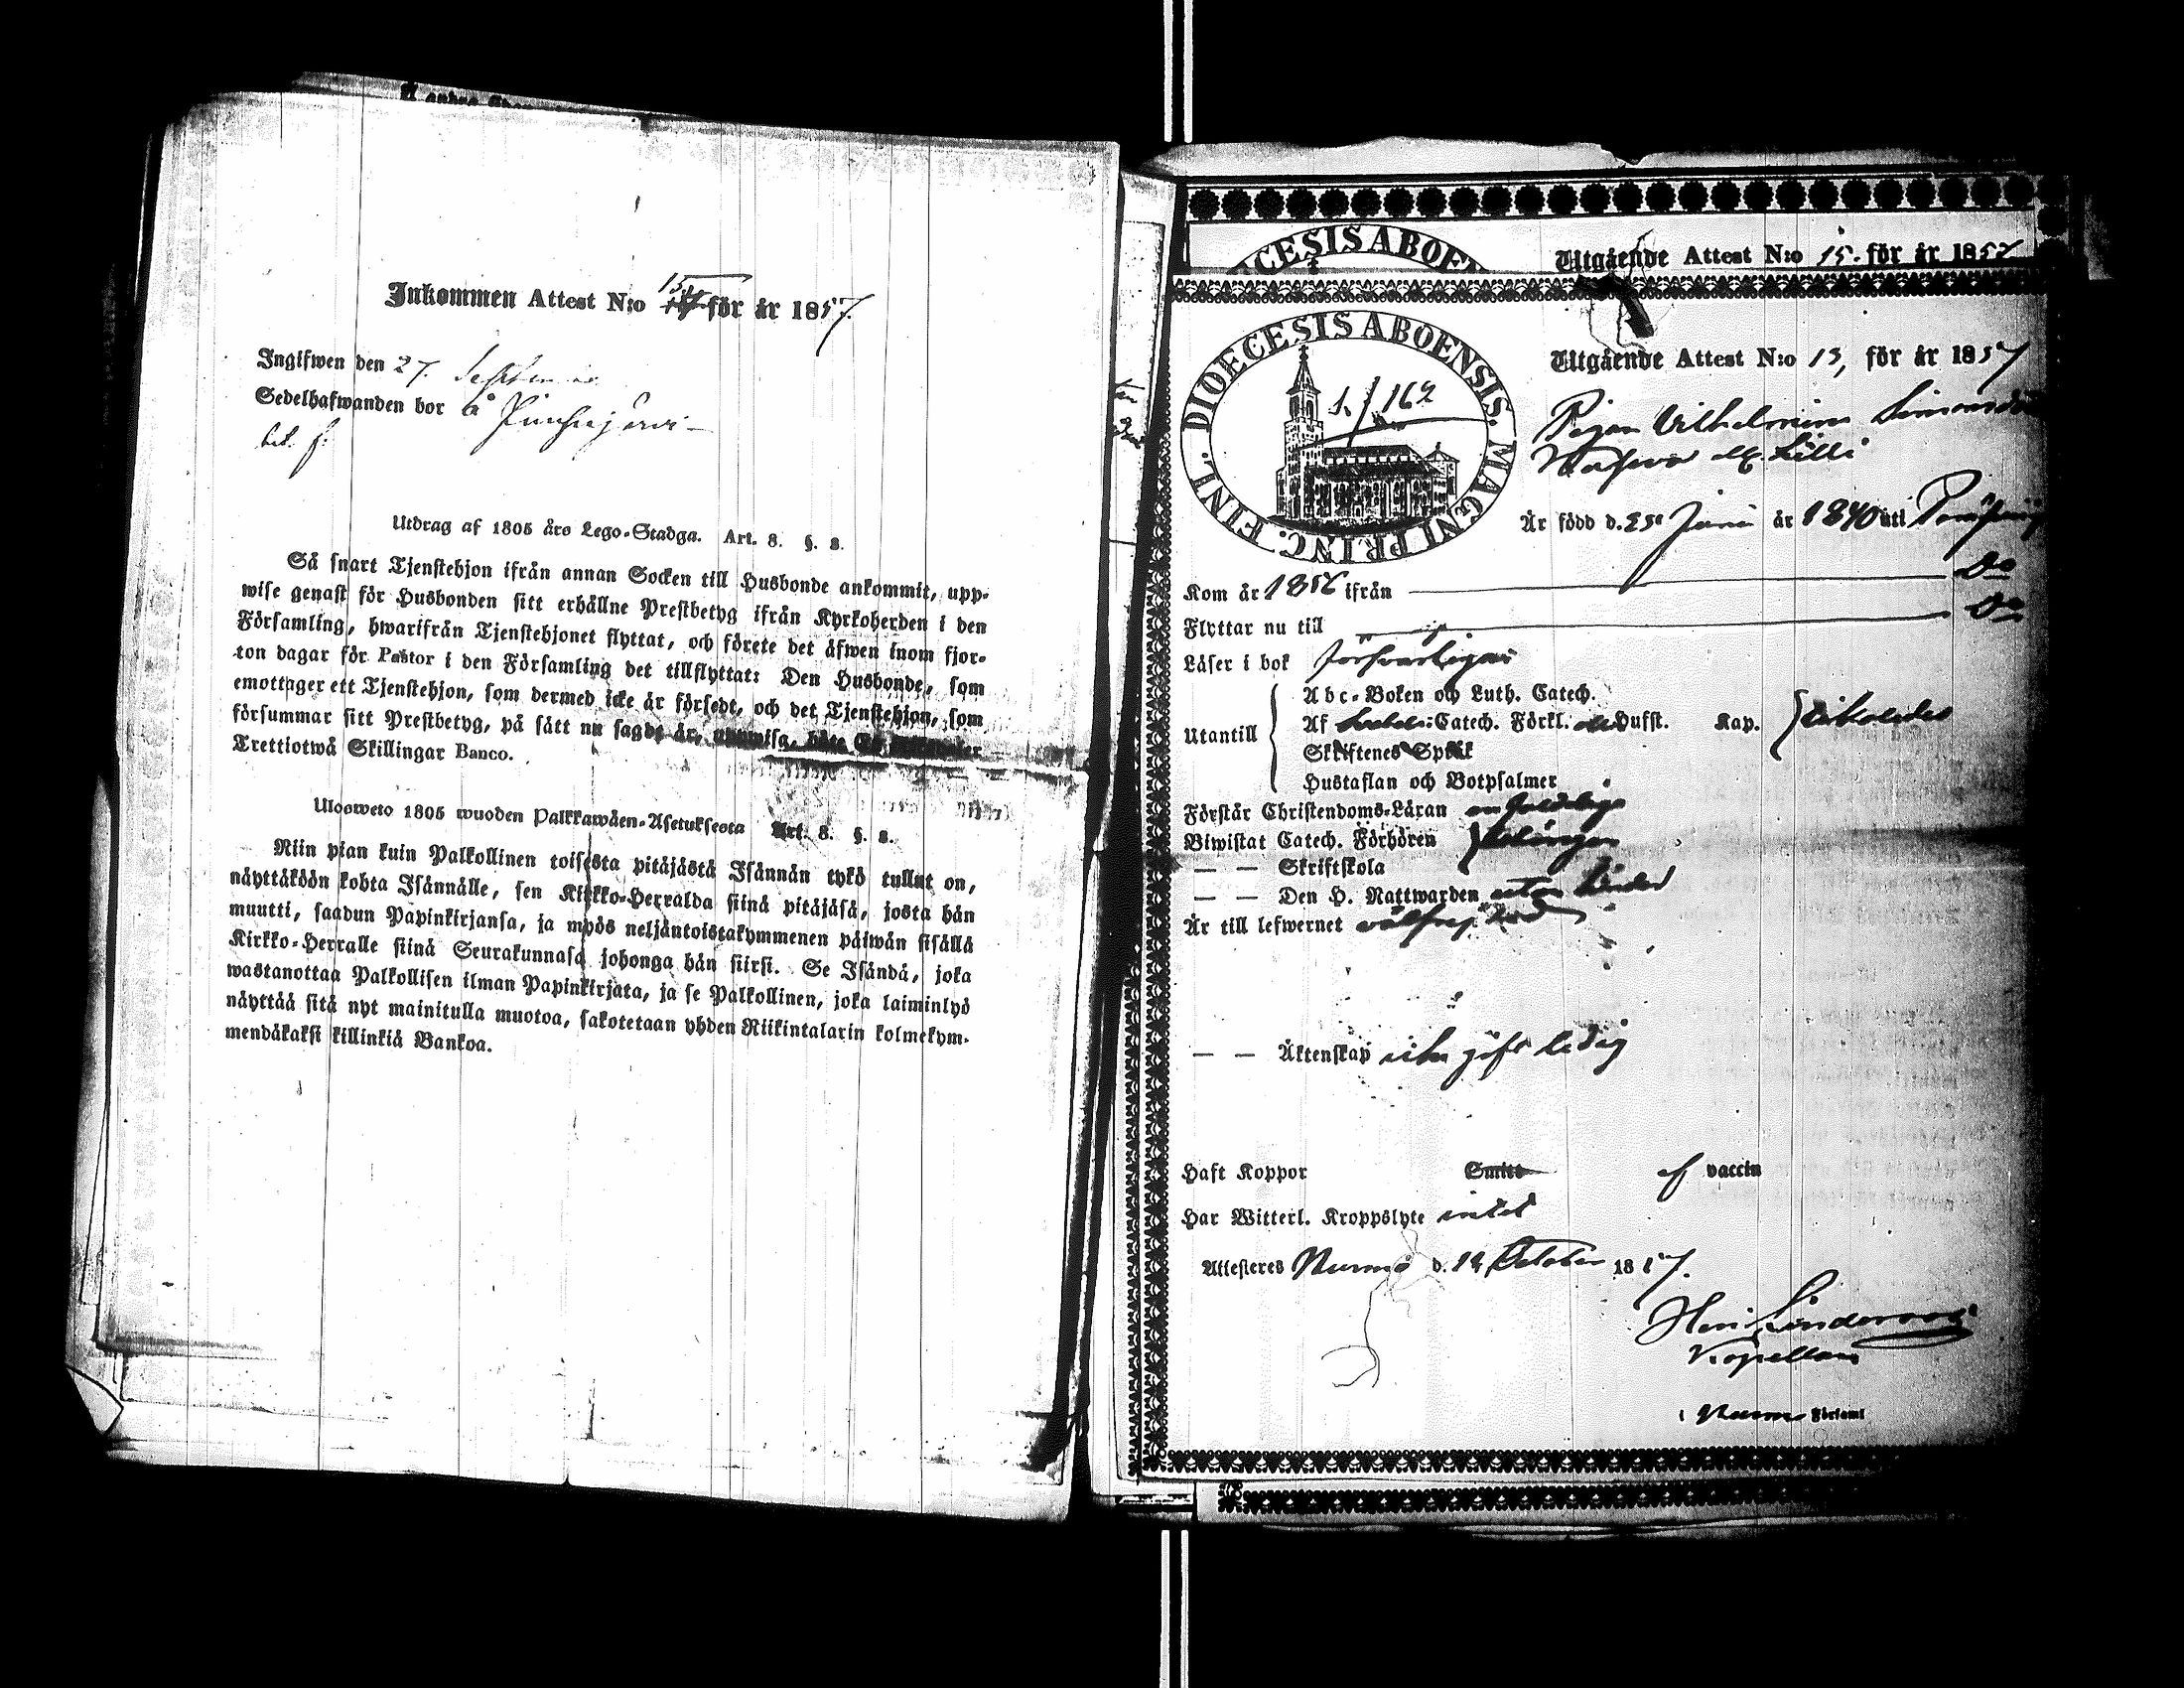 Inkommen Attest N:o 15 för år 1857.
Ingifwen den 27.
Sedelhafwanden bor å
Utdrag af 1805 års Lego-Stadga. Art. 8. §. 8.
Så snart Tjenstehjon ifrån annan Socken till Husbonde ankommit, upp-
wise genast för Husbonden sitt erhållne Prestbetyg ifrån Kyrkoherden i den
Församling, hwarifrån Tjenstehjonet flyttat, och förete det äfwen inom fjor-
ton dagar för Pastor i den Församling det tillflyttat: Den Husbonde, som
emottager ett Tjenstehjon, som dermed icke är försedt, och det Tjenstehjon, som
försummar sitt Prestbetyg, på sätt nu sagdt är, uppwisa, böte
Trettiotwå Skillingar Banco.
Ulosweto 1805 wuoden Palkkawäen-Asetuksesta Art. 8. §. 8.
Niin pian kuin Palkollinen toisesta pitäjästä Isännän tykö tullut on,
näyttäköön kohta Isännälle, sen Kirkko-Herralda siinä pitäjäsä, josta hän
muutti, saadun Papinkirjansa, ja myös neljäntoistakymmenen päiwän sisällä
Kirkko-Herralle siinä Seurakunnasa johonga hän siirsi. Se Isändä, joka
wastanottaa Palkollisen ilman Papinkirjata, ja se Palkollinen, joka laiminlyö
näyttää sitä nyt mainitulla muotoa, sakotetaan yhden Riikintalarin kolmekym-
mendäkaksi killinkiä Bankoa.
Utgående Attest N:o 15. för år 1857
DIOECESIS ABOENSIS. MAGNI PRINC. FINL.
1. / 162
Utgående Attest N:o 13, för år 1857
Pigan Vilhelmina Simonsd
Är född d. 25 Juni år 1840 uti
Kom år 1856 ifrån Do
Flyttar nu till Do
Läser i bok försvarligen
Utantill
Abc-Boken och Luth. Catech.
Af Catech. Förkl. Hufst. Kap.
Skriftenes Språk
Hustaflan och Botpsalmer
Förstår Christendoms-Läran
Biwistat Catech. Förhören
— — Skriftskola
— — Den H. Nattwarden utan hinder
Är till lefwernet
— — Äktenskap icke gift ledig
Haft Koppor Smitt af vaccin
Har Witterl. Kroppslyte intet
Attesteres Nurmo d. 14 October 1857.
Kapellan
i Nurmo Församl